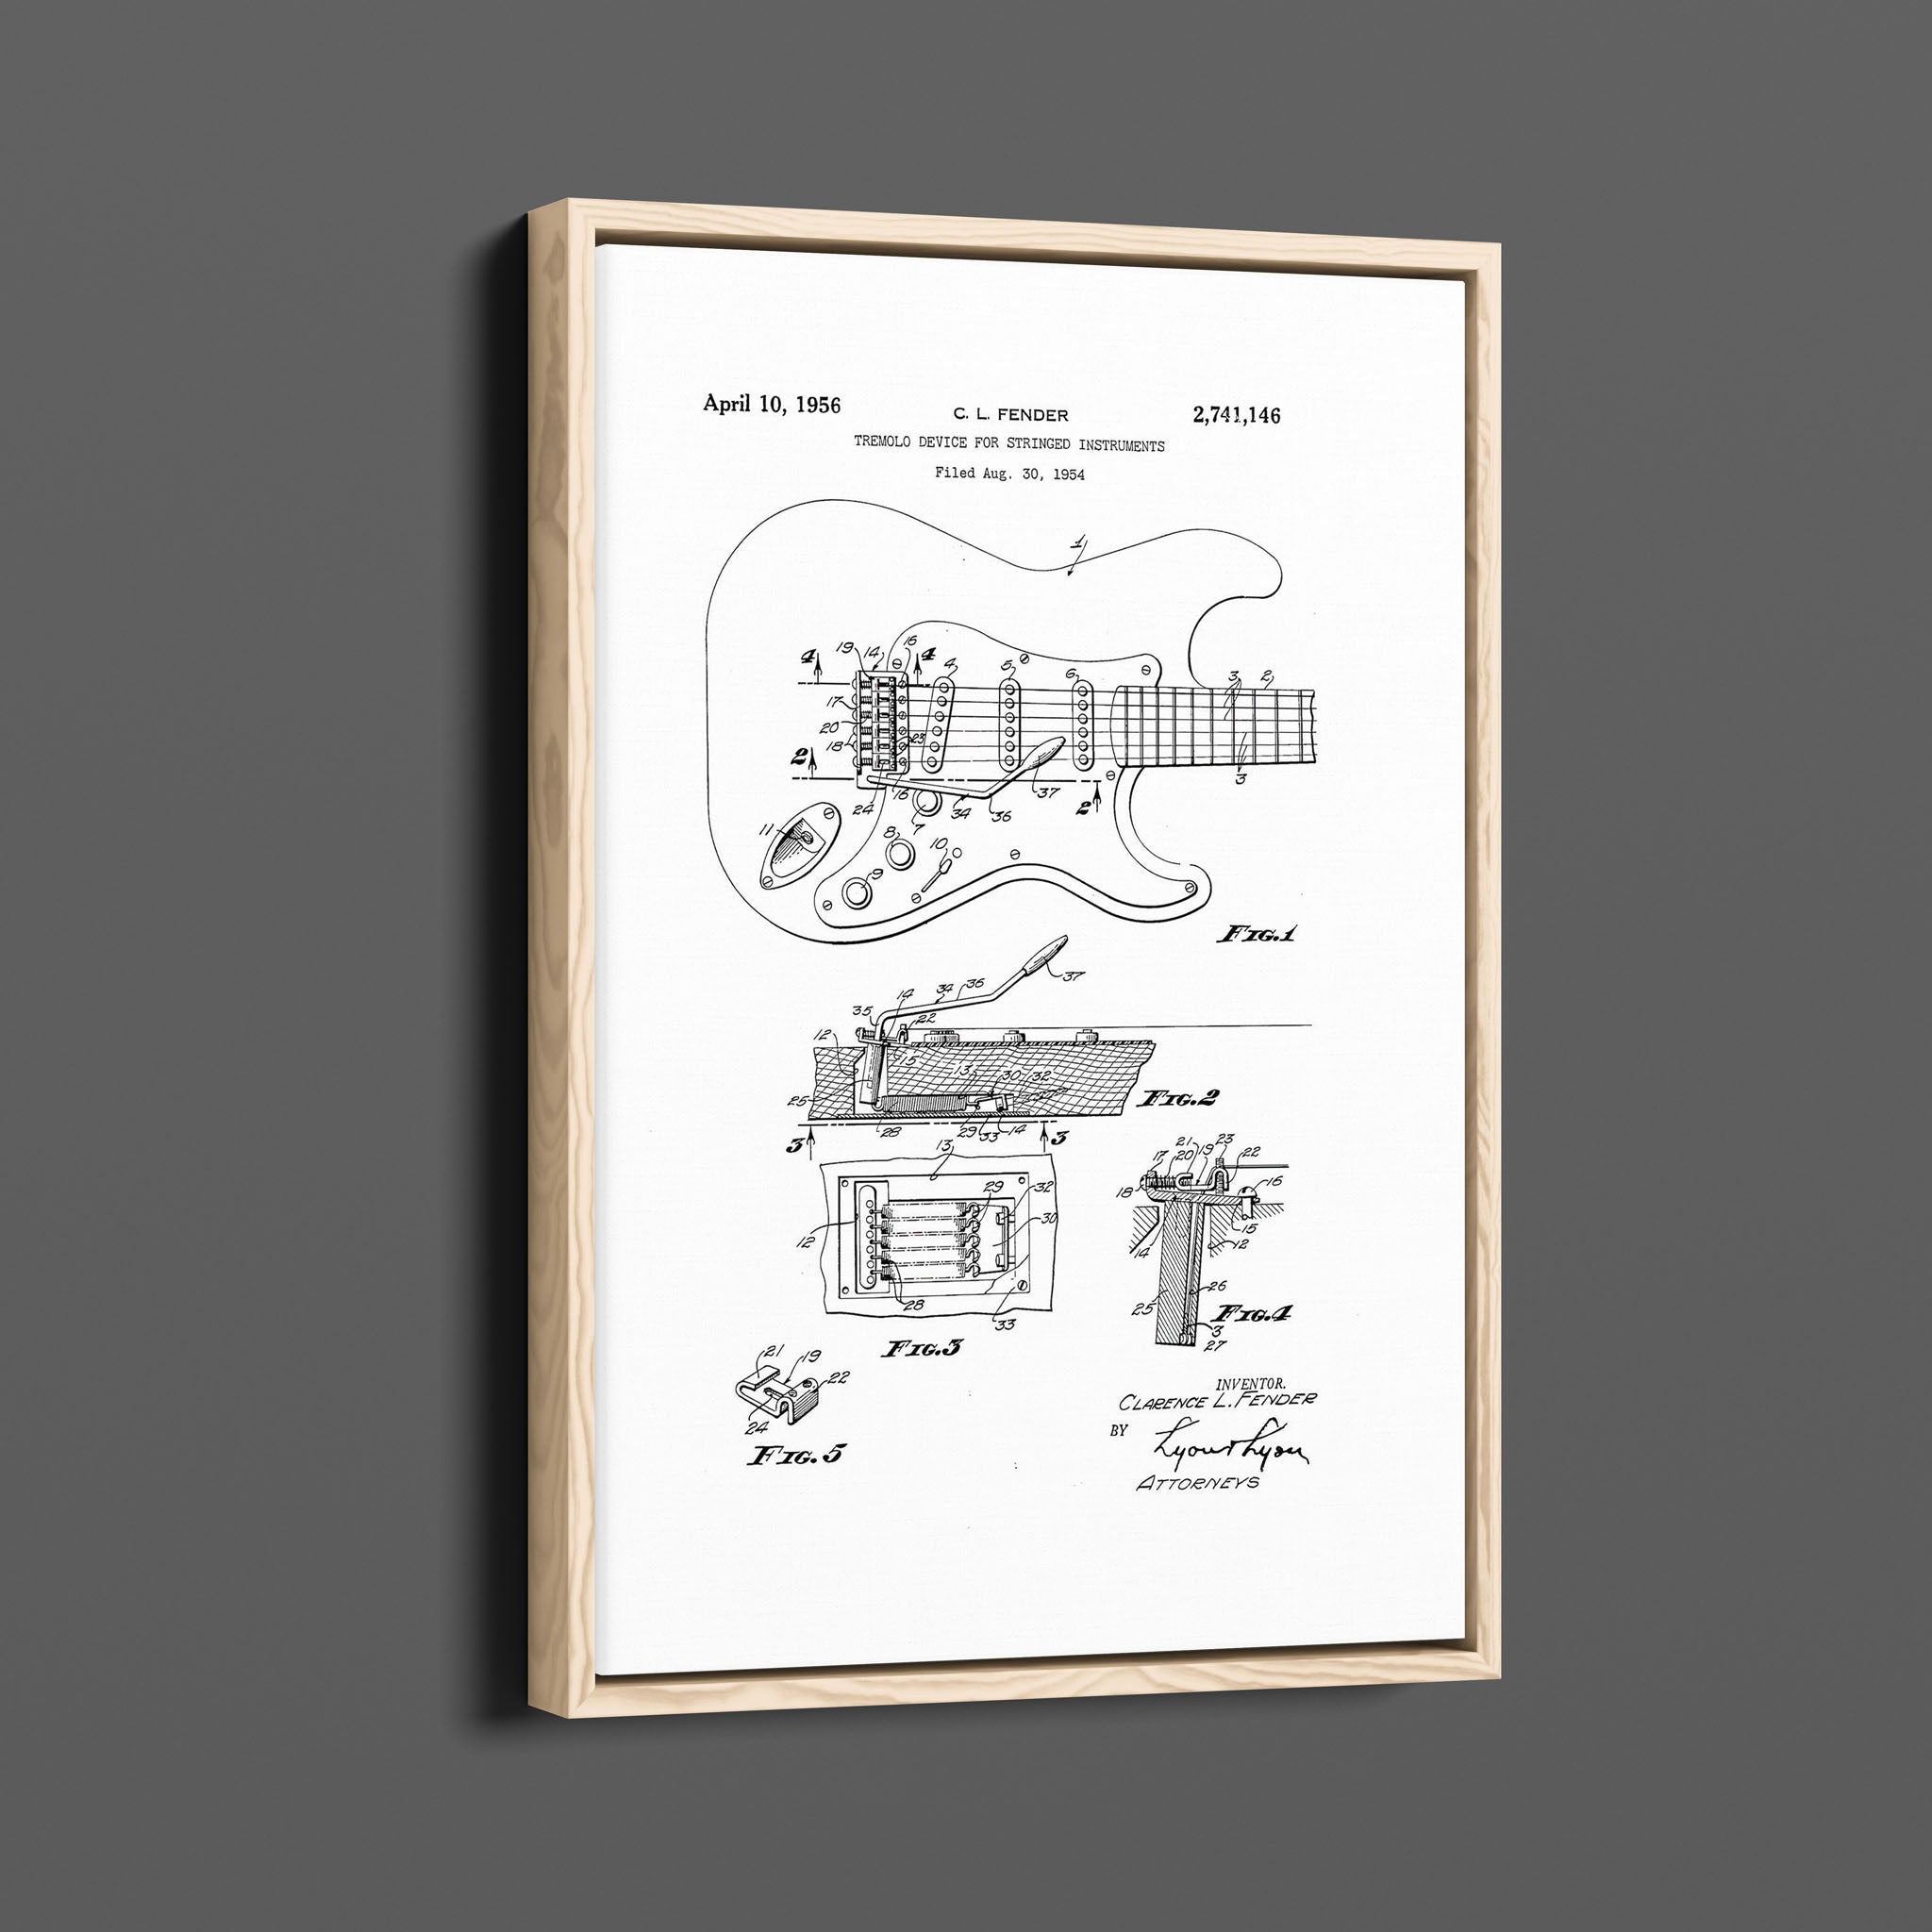 April 10, 1956 C. L. FENDER 2,741,146
TREMOLO DEVICE FOR STRINGED INSTRUMENTS
Filed Aug. 30, 1954
1
19 14 16
4 4 4 5 6 3 2
17
20
18 23
2
24 16 7 34 36 37 2 3
11 8 10
9
FIG.1
37
35 14 34 36
12 22
15 13 30 32
25
FIG.2
28 29 33 14
3 3
13
29 32
30
12
28
33
FIG.3
21 23
17 20 19 22
18 16
15
14 12
26
25
FIG.4
3
27
21 19
22
24
FIG.5
INVENTOR.
CLARENCE L. FENDER
BY Lyon & Lyon
ATTORNEYS